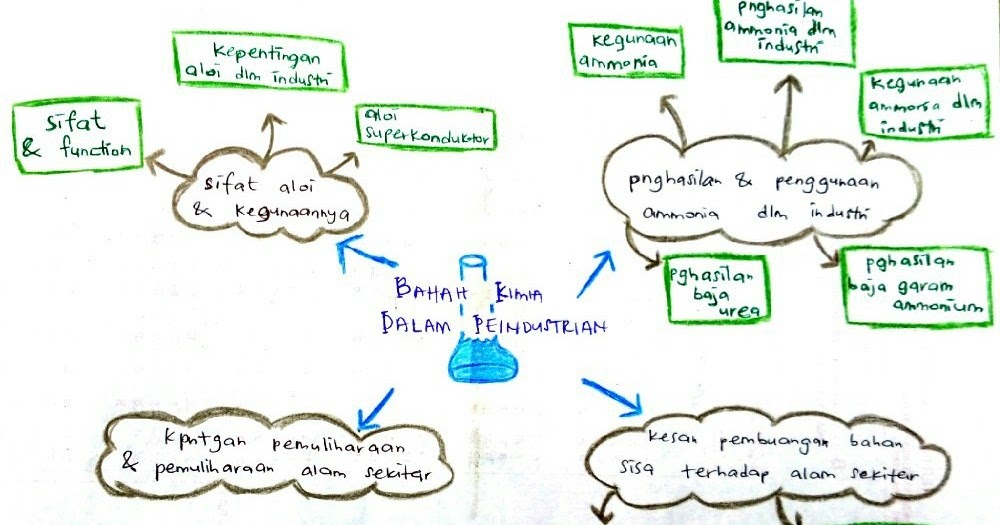 Kepentingan
aloi dlm industri
sifat
& function
aloi
superkonduktor
sifat aloi
& kegunaannya
kegunaan
ammonia
pnghasilan
ammonia dlm
industri
kegunaan
ammonia dlm
industri
pnghasilan & penggunaan
ammonia dlm industri
pghasilan
baja
urea
pghasilan
baja garam
ammonium
BAHAH KIMIA
DALAM PEINDUSTRIAN
kpntgan pemuliharaan
& pemuliharaan alam sekitar
kesan pembuangan bahan
sisa terhadap alam sekitar